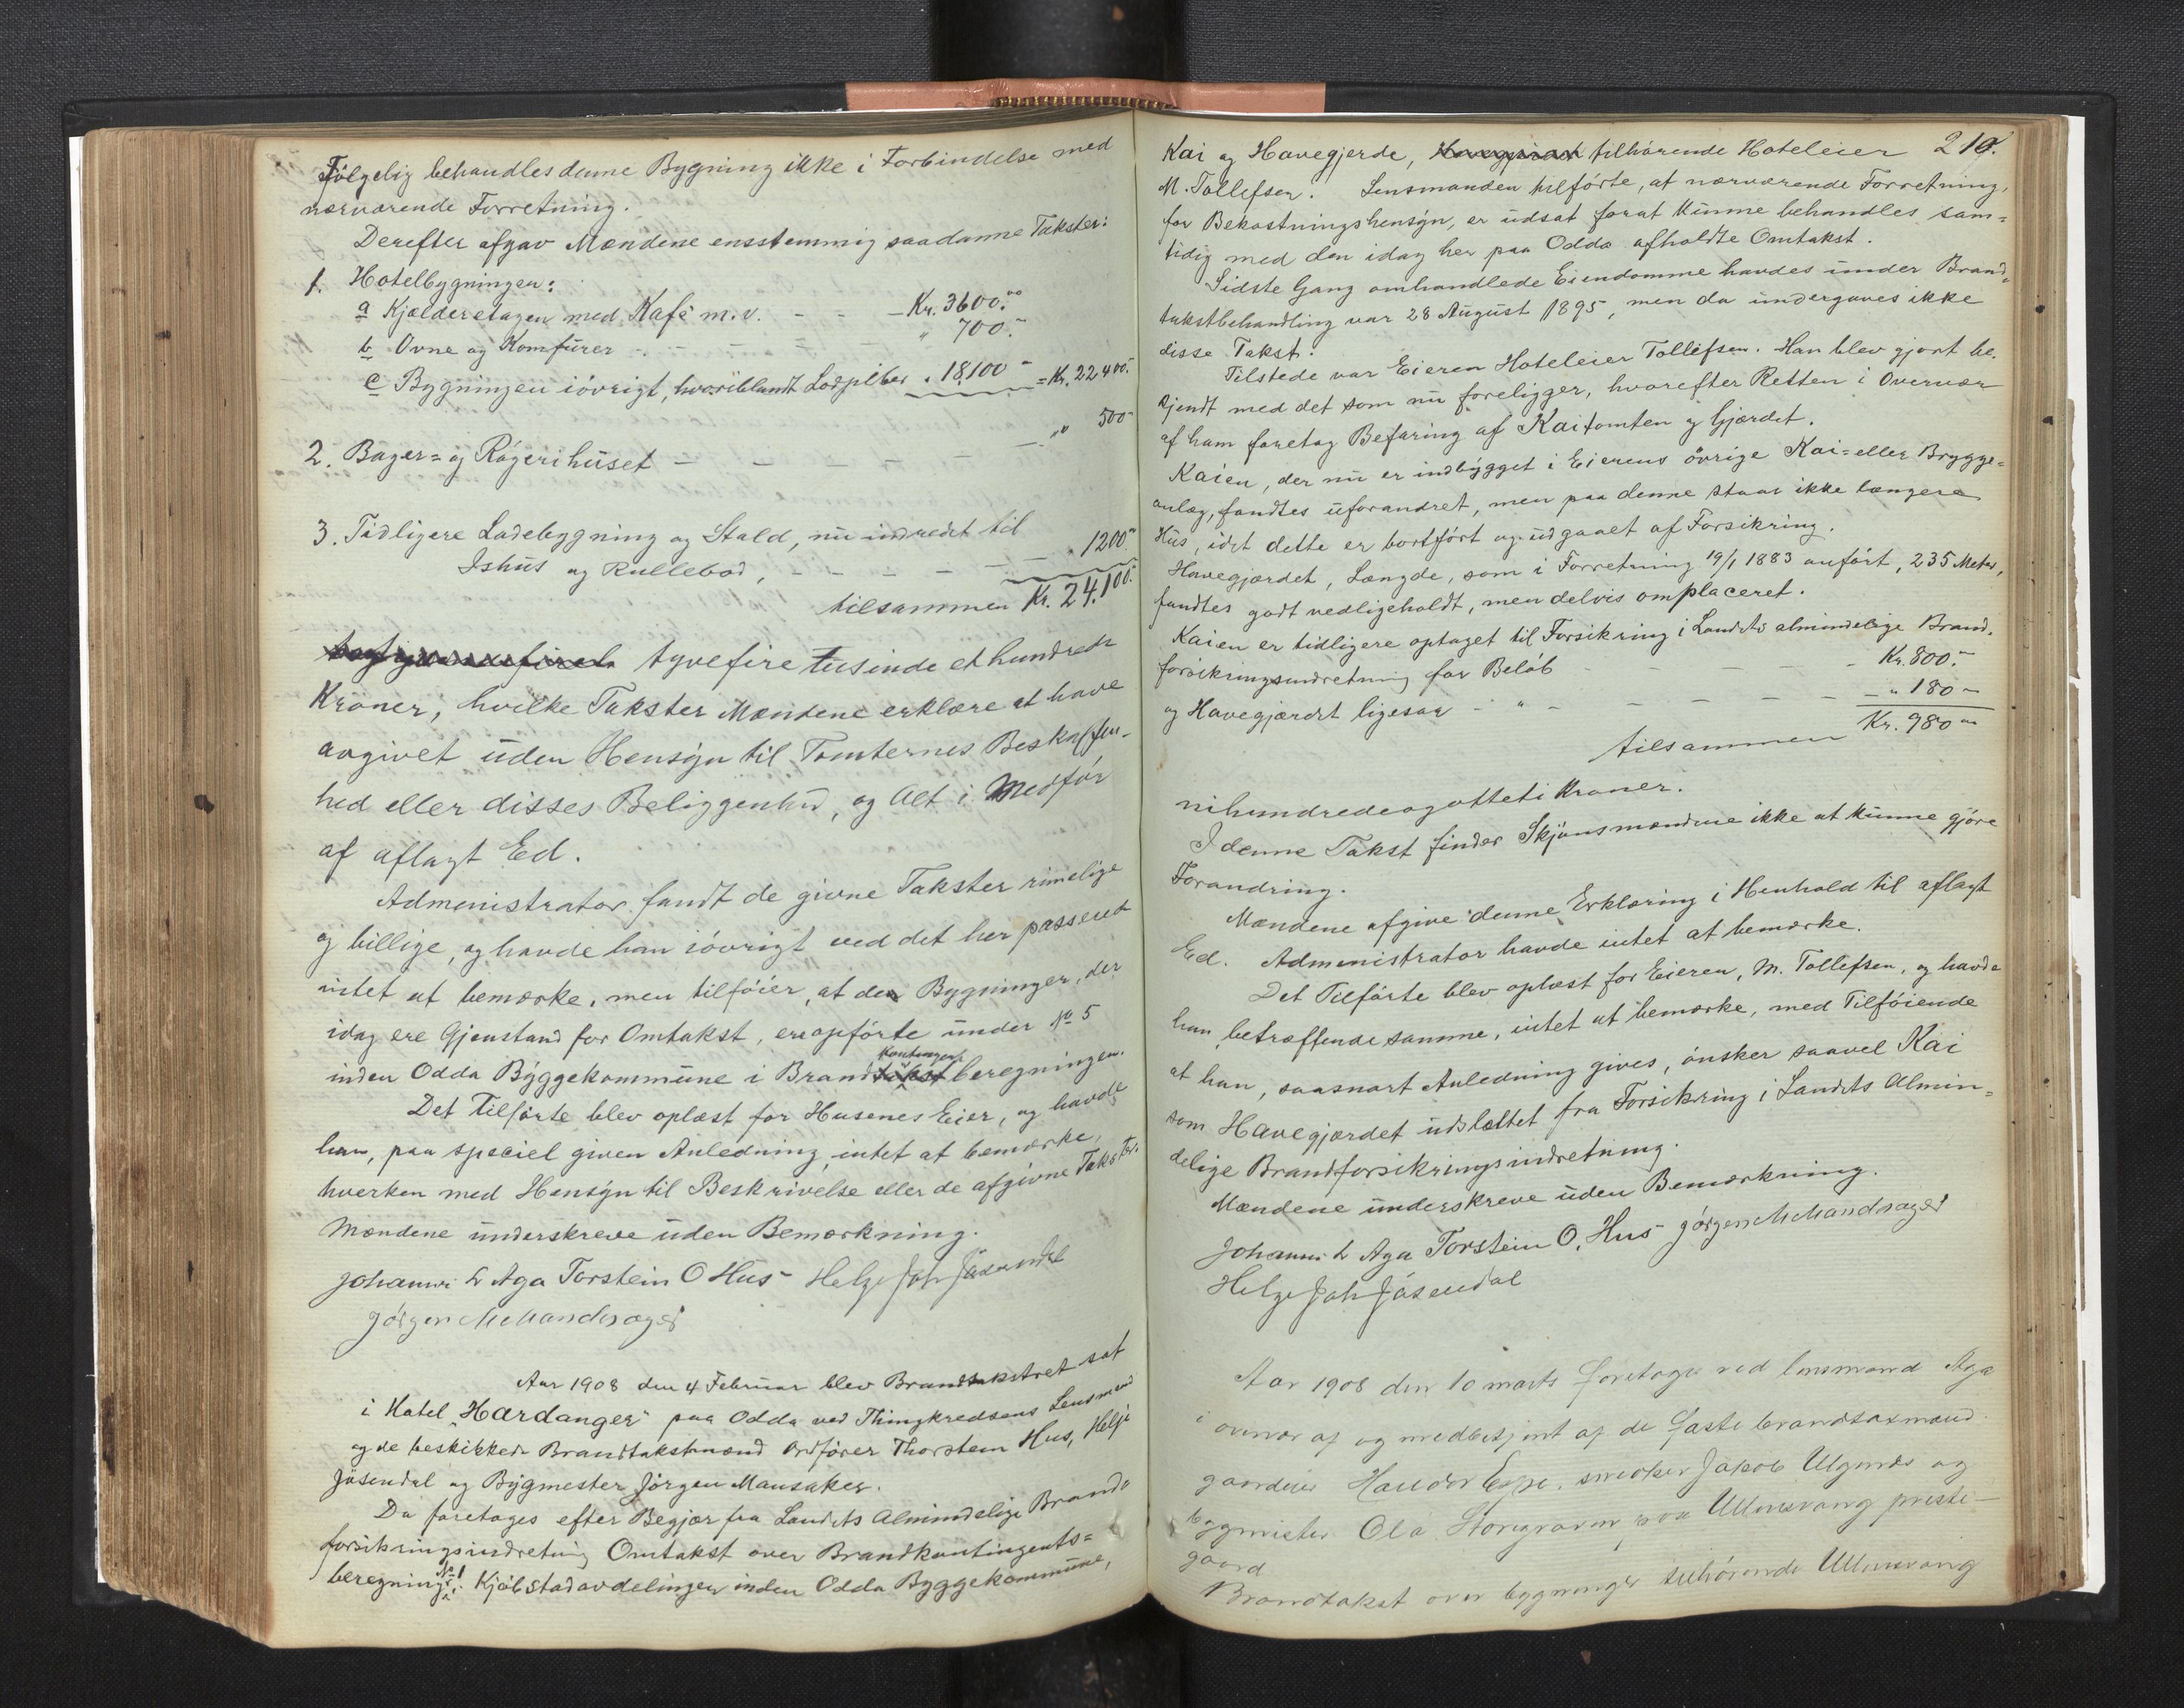 Følgelig behandles denne Bygning ikke i Forbindelse med
nærværende Forretning.
Derefter afgav Mændene ensstemmig saadanne Takster:
1. Hotelbygningen:
a Kjælderetagen med Kafé m.v. - - - Kr. 3600.00
b Ovne og Komfurer - - - " 700.-
c Bygningen iøvrigt, hvoriblandt Lodpiber " 18,100 - = Kr. 22,400.-
2. Bager= og Røgerihuset - - - - - - - " 500-
3. Tidligere Ladebygning og Stald, nu indredet til
Ishus og Rullebod, - - - - - - " 1200.00
tilsammen Kr. 24,100.-
tyvefire tusinde et hundrede
Kroner; hvilke Takster Mændene erklære at have
avgivet uden Hensyn til Tomternes Beskaffen-
hed eller disses Beliggenhed, og Alt i Medfør
af aflagt Ed.
Administrator fandt de givne Takster rimelige
og billige, og havde han iøvrigt ved det her passerede
intet at bemærke, men tilføier, at de Bygninger, der
idag ere Gjenstand for Omtakst, ere opførte under No 5
inden Odda Byggekommune i Brandkontingentberegningen.
Det Tilførte blev oplæst for Husenes Eier, og havde
han, paa speciel given Anledning, intet at bemærke,
hverken med Hensyn til Beskrivelse eller de afgivne Takster.
Mændene underskreve uden Bemærkning.
Johannes L Aga Torstein O Hus Helge Joh Jøsendal
Jørgen M Mandsager
Aar 1908 den 4 Februar blev Brandtakstret sat
i Hotel "Hardanger" paa Odda ved Thingkredsens Lensmand
og de beskikkede Brandtakstmænd Ordfører Thorstein Hus, Helje
Jøsendal og Bygmester Jørgen Mansaker.
Da foretoges efter Begjær fra Landets Almindelige Brand
forsikringsindretning Omtakst over Brandkontingents=
beregning No 1 i Kjøbstadavdelingen inden Odda Byggekommune,
210.
Kai og Havegjerde, tilhørende Hoteleier
M. Tollefsen. Lensmanden tilførte, at nærværende Forretning,
for Bekostningshensyn, er udsat forat kunne behandles sam=
tidig med den idag her paa Odda afholdte Omtakst.
Sidste Gang omhandlede Eiendomme havdes under Brand=
takstbehandling var 28 August 1895, men da undergaves ikke
disse Takst.
Tilstede var Eieren Hoteleier Tollefsen. Han blev gjort be-
kjendt med det som nu foreligger, hvorefter Retten i Overvær
af ham foretog Befaring af Kaitomten og Gjærdet.
Kaien, der nu er indbygget i Eierens øvrige Kai= eller Brygge=
anlæg, fandtes uforandret, men paa denne staar ikke længere
Hus, idet dette er bortført og udgaaet af Forsikring.
Havegjærdet, Længde, som i Forretning 19/1 1883 anført, 235 Meter,
fandtes godt vedligeholdt, men delvis omplaceret.
Kaien er tidligere optaget til Forsikring i Landets almindelige Brand.
forsikringsindretning for Beløb - - - - - Kr. 800.-
og Havegjærdet ligesaa - " - - - - - - " 180 -
tilsammen Kr. 980 00
nihundredeogotteti Kroner.
I denne Takst finder Skjønsmændene ikke at kunne gjøre
Forandring.
Mændene afgive denne Erklæring i Henhold til aflagt
Ed. Administrator havde intet at bemærke.
Det Tilførte blev oplæst for Eieren, M. Tollefsen, og havde
han, betræffende samme, intet at bemærke, med Tilføiende
at han, saasnart Anledning gives, ønsker saavel Kai
som Havegjærdet udslettet fra Forsikring i Landets Almin=
delige Brandforsikringsindretning.
Mændene underskreve uden Bemærkning.
Johannes L Aga Torstein O. Hus Jørgen M Mandsager
Helge Joh Jøsendal
Aar 1908 den 10 marts foretoges ved lensmand Aga
i overvær af og medbetjent af de faste brandtaxmænd
gaardeier Haldor Espe, snedker Jakob Ulgenæs og
bygmester Ola paa Ullensvang preste-
gaard
Brandtakst over bygninger tilhørende Ullensvang